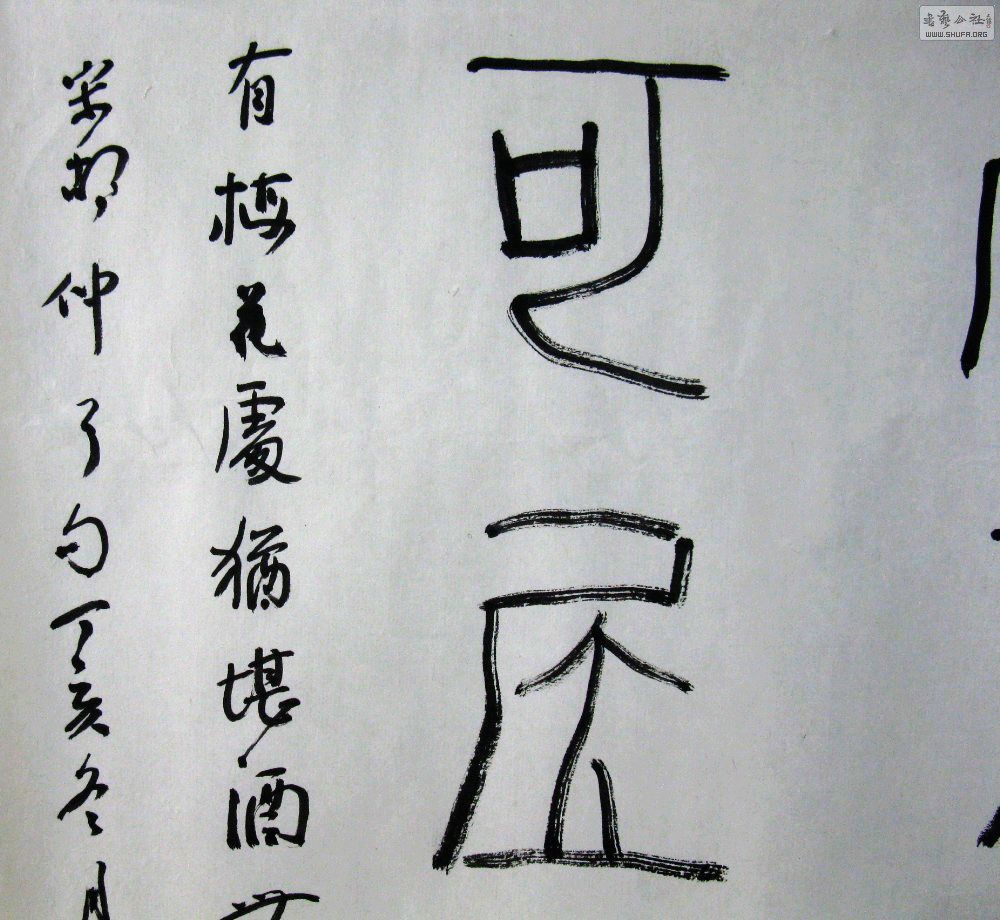 可
有梅花處猶堪酒
宋胡仲弓句丁亥冬月
書藝公社
WWW.SHUFA.ORG